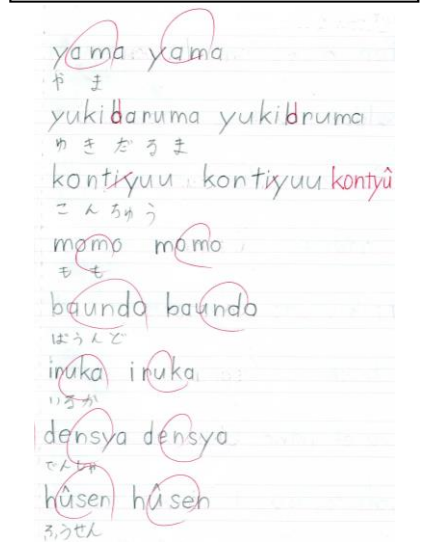 yama yama
やま
yukidaruma yukidruma
ゆきだるま
kontiyuu kontiyuu kontyû
こんちゅう
momo momo
もも
baundo baundo
ばうんど
iruka iruka
いるか
densya densya
でんしゃ
hûsen hûsen
ふうせん